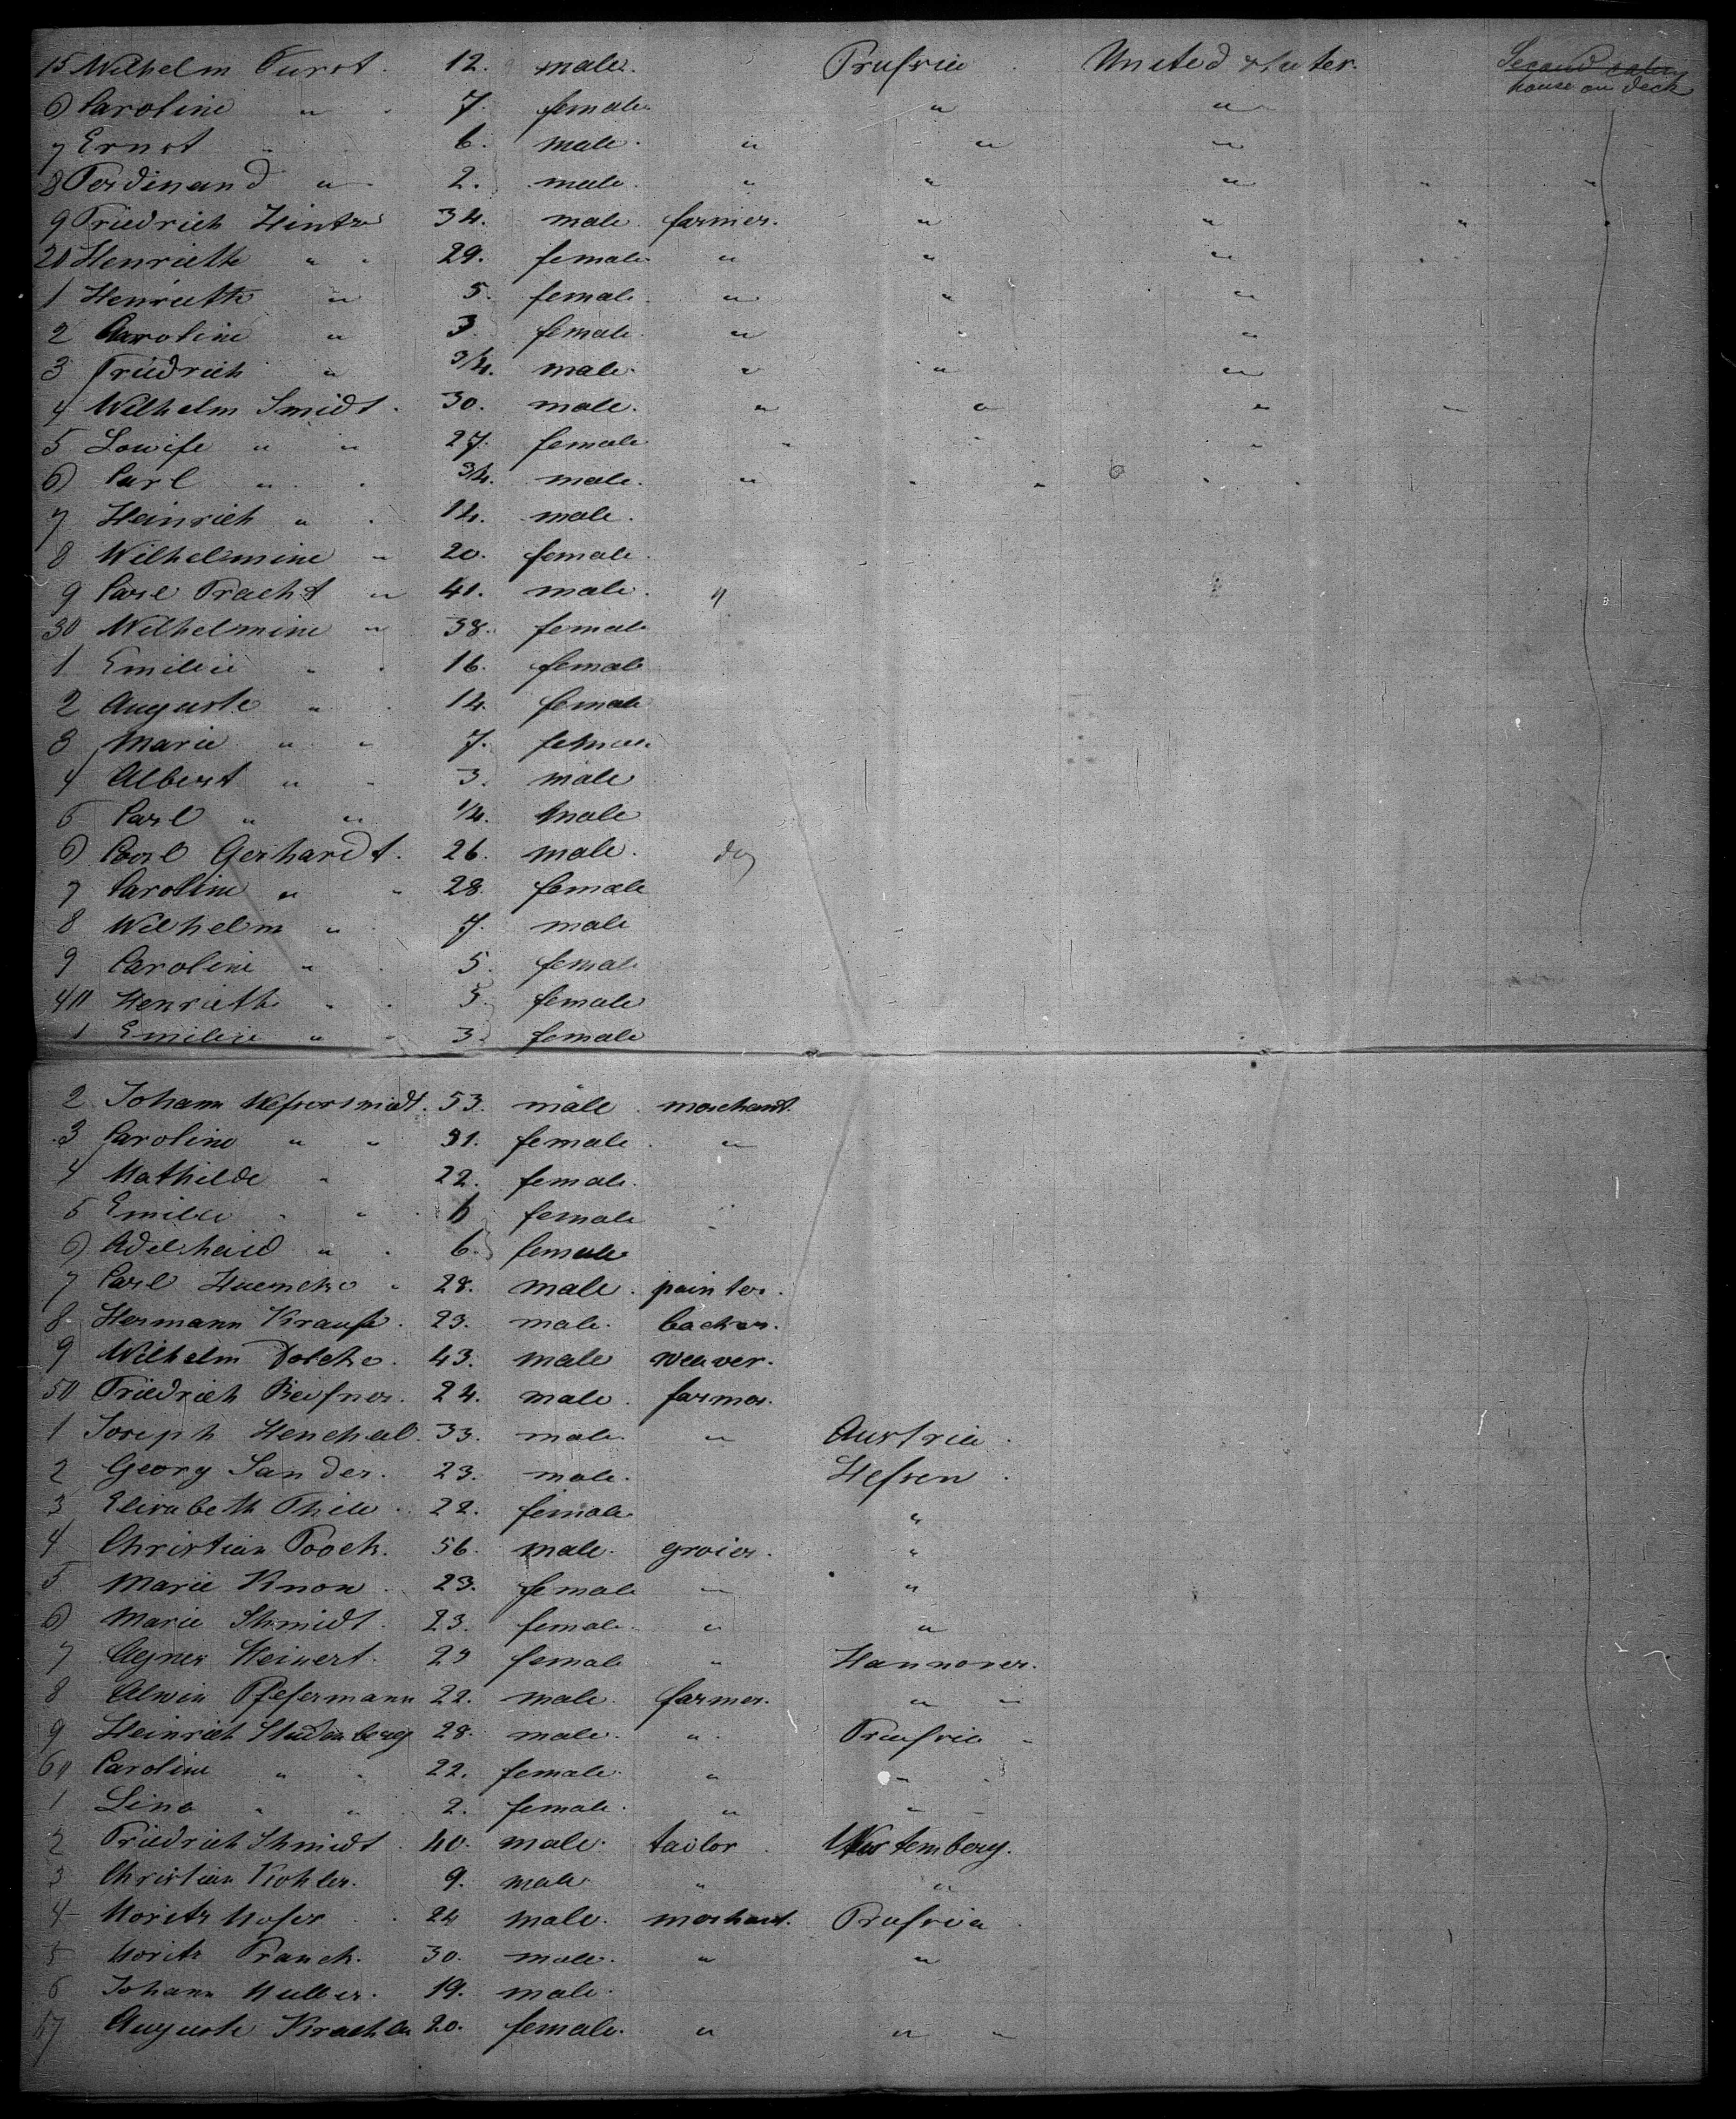 15 Wilhelm Furst. 12. male. Prussia. United States. Second cabin house on deck
6 Caroline " 7. female " "
7 Ernst " 6. male. " " "
8 Ferdinand " 2. male. " " " " "
9 Friedrich Hintze 34. male farmer. " " " "
20 Henriette " 29. female " " " "
1 Henriette " 5. female " " "
2 Caroline " 3. female. " " "
3 Friedrich " 3/4. male. " " "
4 Wilhelm Smidt. 30. male. " " " "
5 Lowise " " 27. female " " "
6 Carl " 3/4. male. "
7 Heinrich " 14. male.
8 Wilhelmine " 20. female.
9 Carl Pracht " 41. male. "
30 Wilhelmine " 38. female
1 Emilie " 16. female
2 Auguste " 14. female
3 Marie " " 7. female
4 Albert " 3. male
5 Carl " " 1/4. male
6 Carl Gerhardt. 26. male. do
7 Caroline " " 28. female
8 Wilhelm " 7. male
9 Caroline " 5. female
40 Henriette " 5. female
1 Emilie " 3. female
2 Johann Messersmidt. 53. male. merchant.
3 Caroline " " 31. female. "
4 Mathilde " 22. female.
5 Emilie " 6 female
6 Adelheid " 6. female
7 Carl Huencke 28. male. painter.
8 Hermann Krause. 23. male. backer.
9 Wilhelm Dolcke. 43. male weaver.
50 Friedrich Beissner. 24. male. farmer.
1 Joseph Henchel. 33. male. " Austria.
2 Georg Sander. 23. male. Hessen.
3 Elisabeth Thile. 22. female "
4 Christian Poock. 56. male. groier. "
5 Marie Knon. 23. female " "
6 Marie Shmidt. 23. female. " "
7 Agnes Heinert. 23 female " Hannover.
8 Alwin Pfesermann 22. male. farmer. " "
9 Heinrich Studenberg 28. male. " Prussia
60 Caroline " 22. female. " "
1 Lina " " 2. female. " "
2 Friedrich Shmidt. 40. male. tailor. Wurtemberg.
3 Christian Kohler. 9. male " "
4 Moritz Moser 24 male. merchant. Prussia.
5 Moritz Franck. 30. male. " "
6 Johann Muller. 19. male.
67 Auguste 20. female. " " "